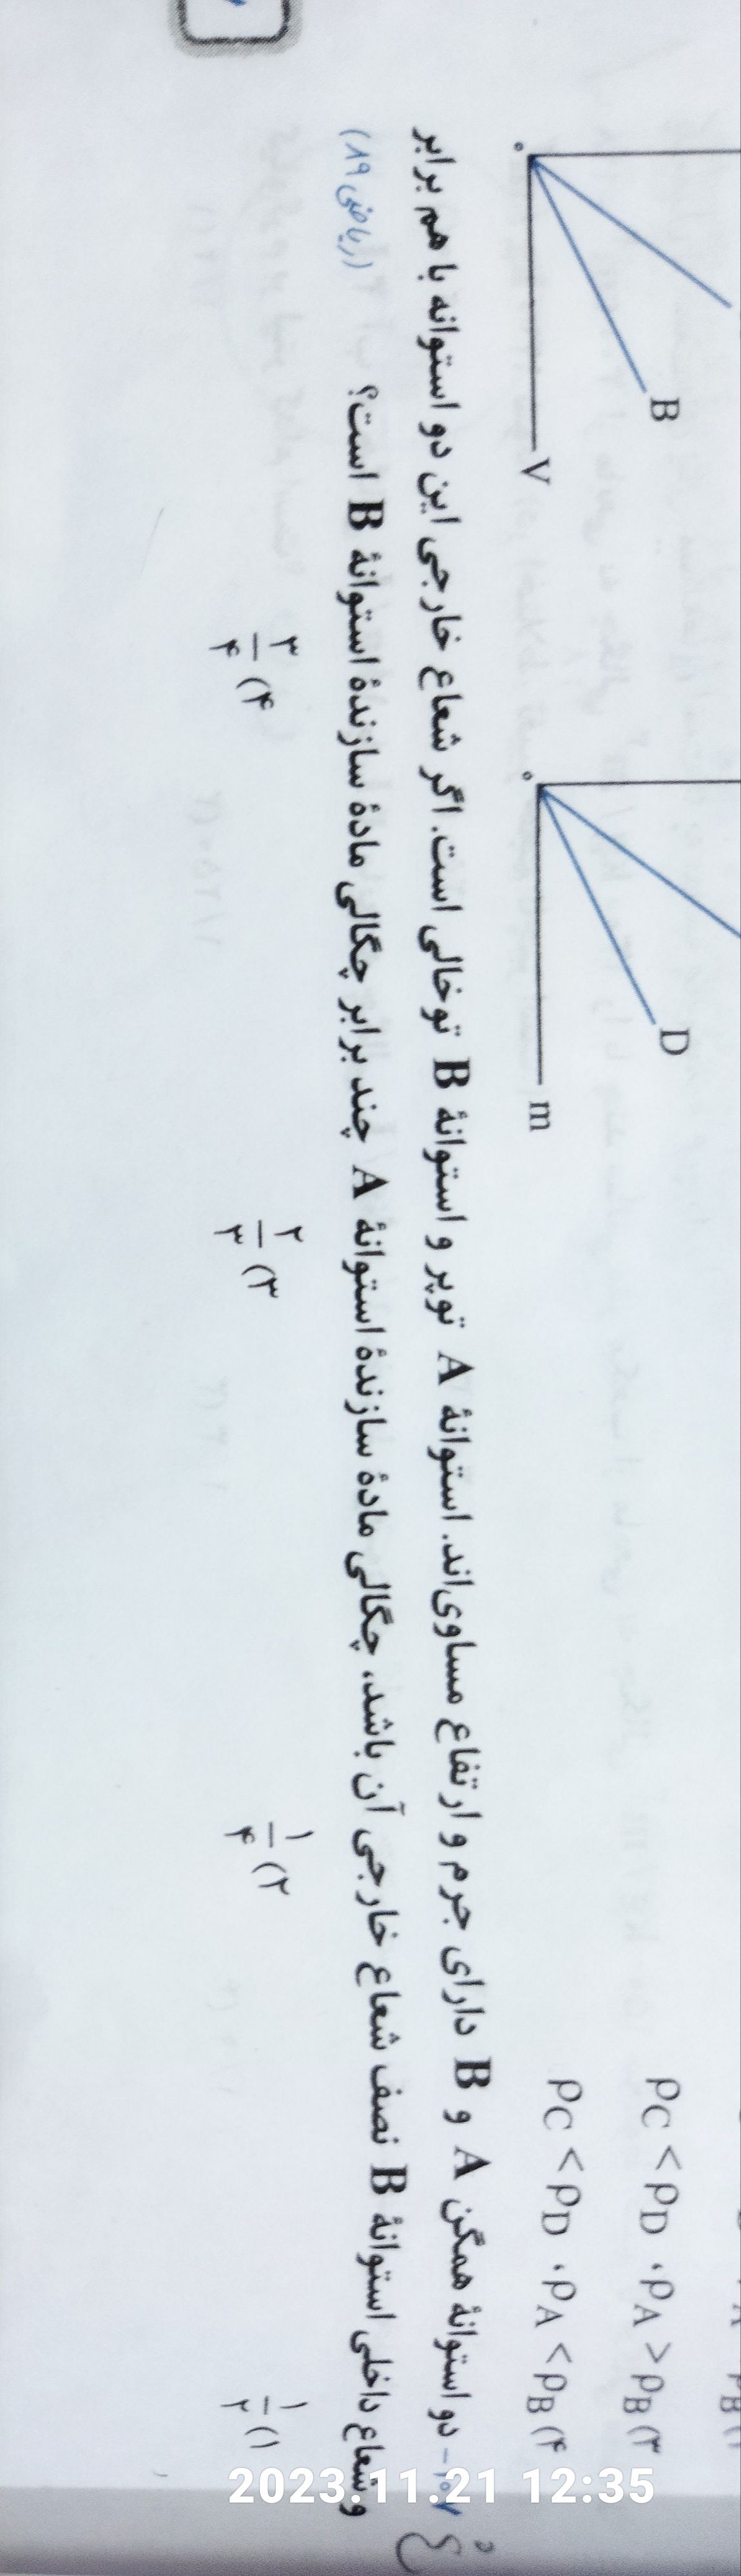 B
V
D
m
ρC < ρD ، ρA > ρB (۳
ρC < ρD ، ρA < ρB (۴
۱۰۷- دو استوانهٔ همگن A و B دارای جرم و ارتفاع مساوی‌اند. استوانهٔ A توپر و استوانهٔ B توخالی است. اگر شعاع خارجی این دو استوانه با هم برابر
و شعاع داخلی استوانهٔ B نصف شعاع خارجی آن باشد، چگالی مادهٔ سازندهٔ استوانهٔ A چند برابر چگالی مادهٔ سازندهٔ استوانهٔ B است؟ (ریاضی ۸۹)
۱) ۱/۲ ۲) ۱/۴ ۳) ۲/۳ ۴) ۳/۴
2023.11.21 12:35